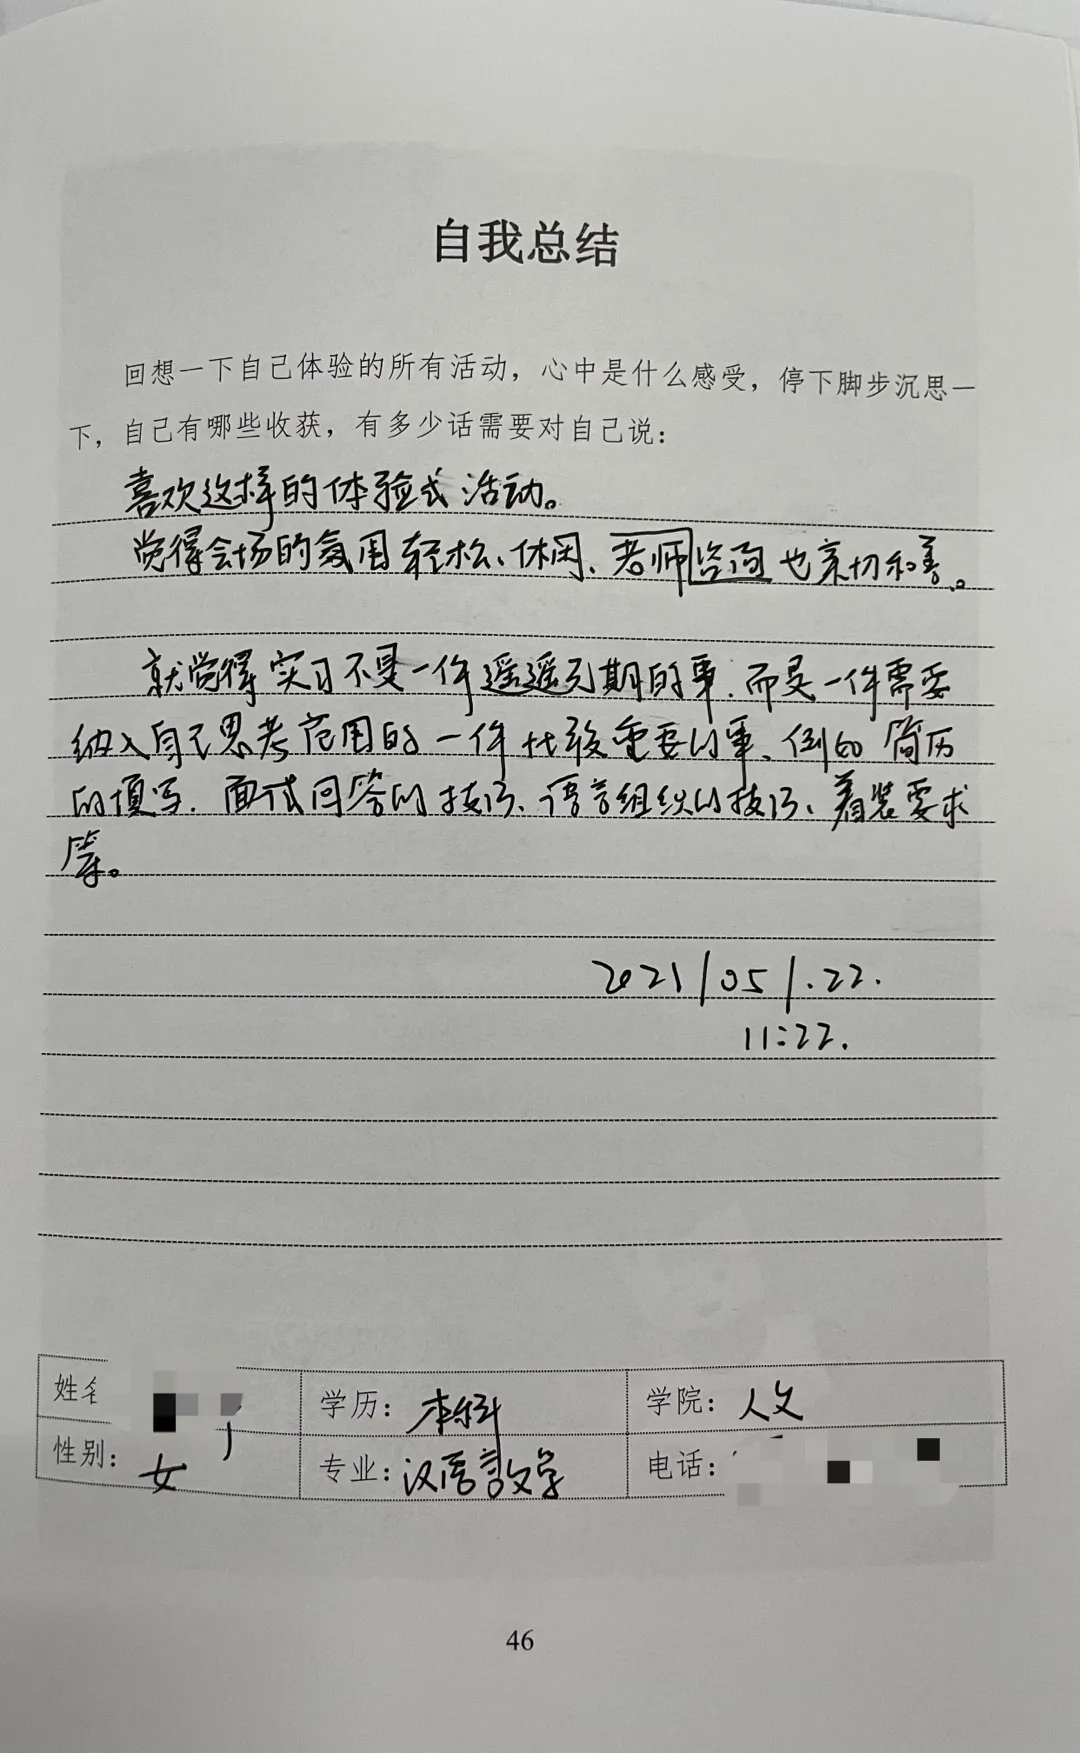 自我总结
回想一下自己体验的所有活动，心中是什么感受，停下脚步沉思一
下，自己有哪些收获，有多少话需要对自己说：
喜欢这样的体验式活动。
觉得会场的氛围轻松、休闲、老师咨询也亲切和善。
就觉得实习不是一件遥遥无期的事，而是一件需要
纳入自己思考范围的一件比较重要的事、例如简历
的填写、面试问答的技巧、语言组织的技巧、着装要求
等。
2021/05/.22.
11:22.
姓名 学历：本科 学院：人文
性别：女 专业：汉语言文学 电话：
46